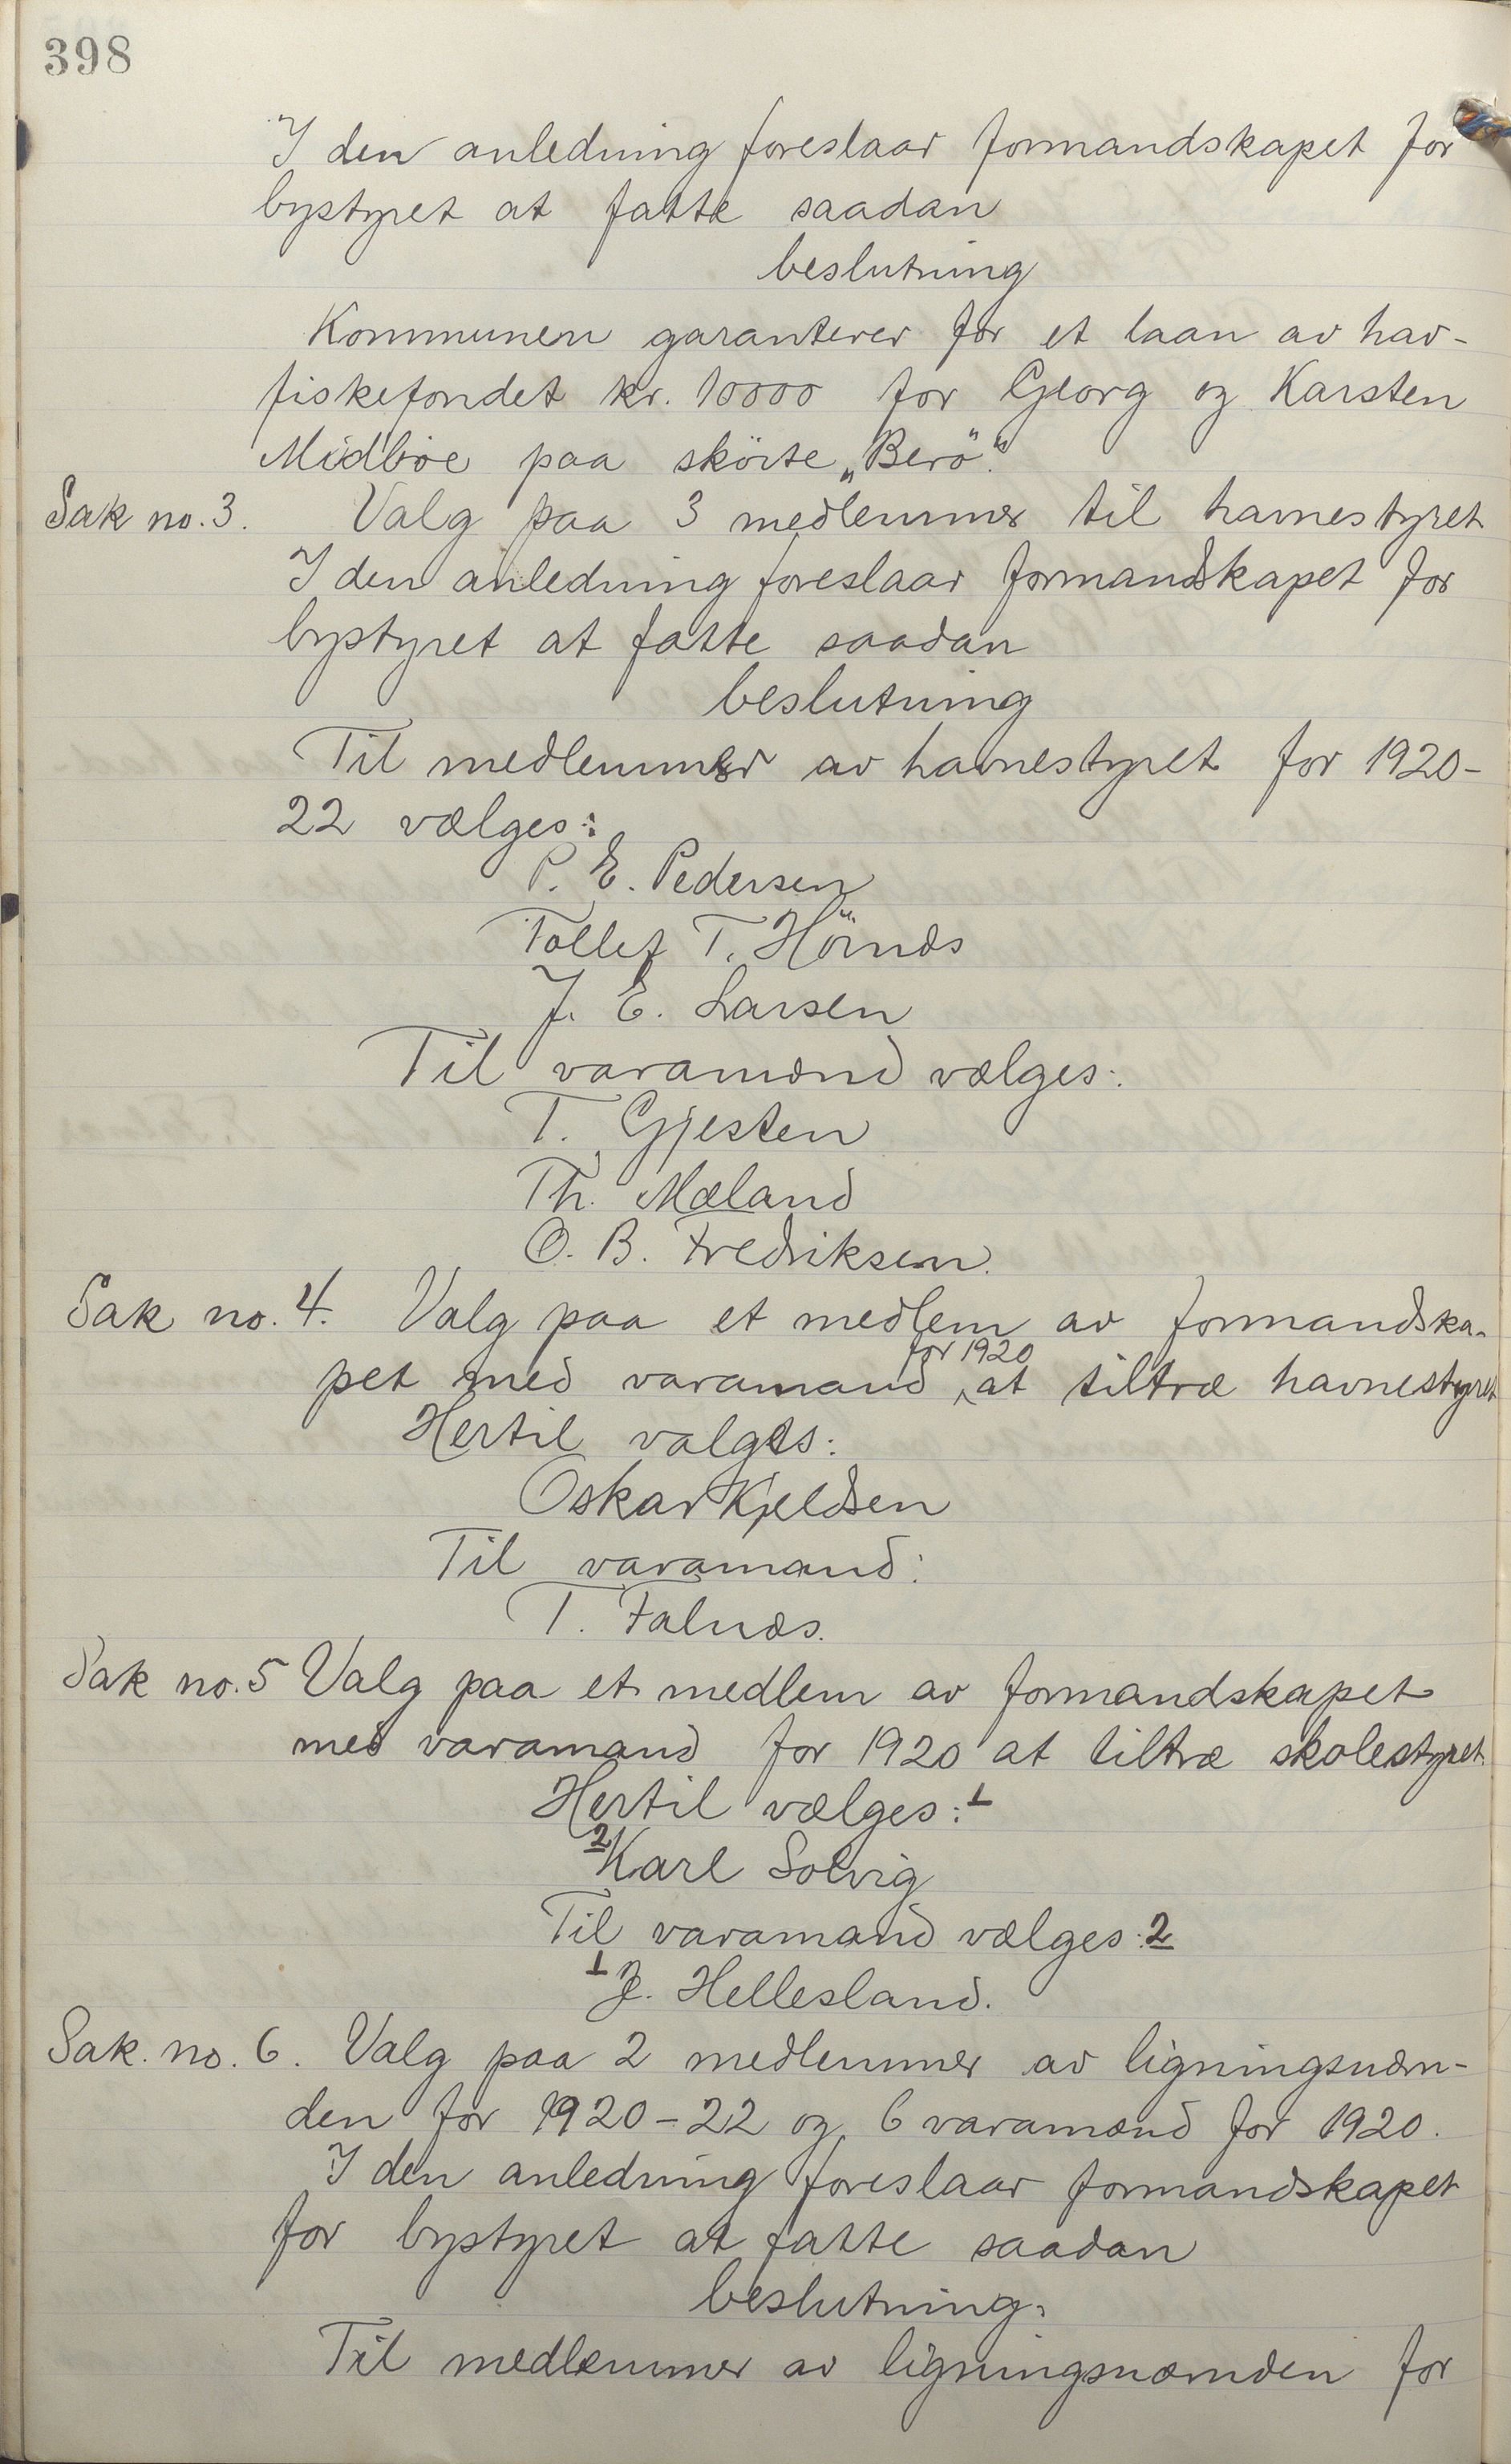 398
I den anledning foreslaar formandskapet for
bystyret at fatte saadan
beslutning
Kommunen garanterer for et laan av hav-
fiskefondet kr. 10000 for Georg og Karsten
Midbøe paa skøite „Berö".
Sak no. 3. Valg paa 3 medlemmer til havnestyret
I den anledning foreslaar formandskapet for
bystyret at fatte saadan
beslutning
Til medlemmer av havnestyret for 1920-
22 vælges:
P. E. Pedersen
Tollef T. Hönæs
J. E. Larsen
Til varamænd vælges:
T. Gjesten
Th. Mæland
O. B. Fredriksen.
Sak no. 4. Valg paa et medlem av formandska-
for 1920
pet med varamand at tiltræ havnestyret
Hertil valgtes:
Oskar Kjeldsen
Til varamand:
T. Falnæs.
Sak no. 5 Valg paa et medlem av formandskapet
med varamand for 1920 at tiltræ skolestyret.
Hertil vælges: 1
2 Karl Solvig
Til varamand vælges: 2
1 J. Hellesland.
Sak. no. 6. Valg paa 2 medlemmer av ligningsnæm-
den for 1920-22 og 6 varamænd for 1920.
I den anledning foreslaar formandskapet
for bystyret at fatte saadan
beslutning.
Til medlemmer av ligningsnæmden for